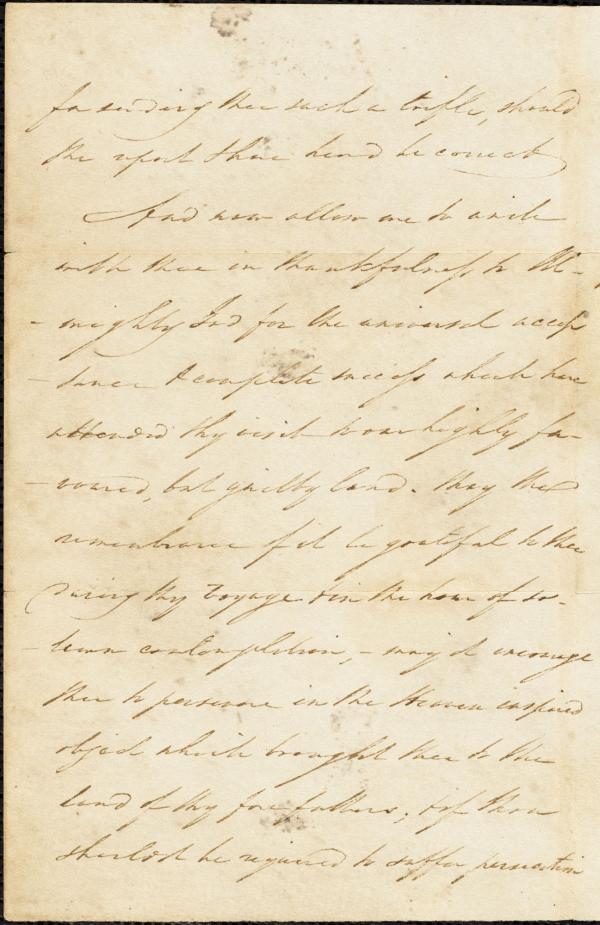 for sending thee such a trifle, should
the report I have heard be correct
And now allow me to unite
with thee in thankfulness to Al-
-mighty God for the universal accep
-tance & complete success which have
attended thy visit to our highly fa-
-voured, but guilty land. May the
remembrance of it be grateful to thee
during thy voyage & in the hour of so-
-lemn contemplation, - may it encourage
thee to persevere in the Heaven inspired
object which brought thee to the
land of thy fore fathers; & if thou
shouldst be required to suffer persecution